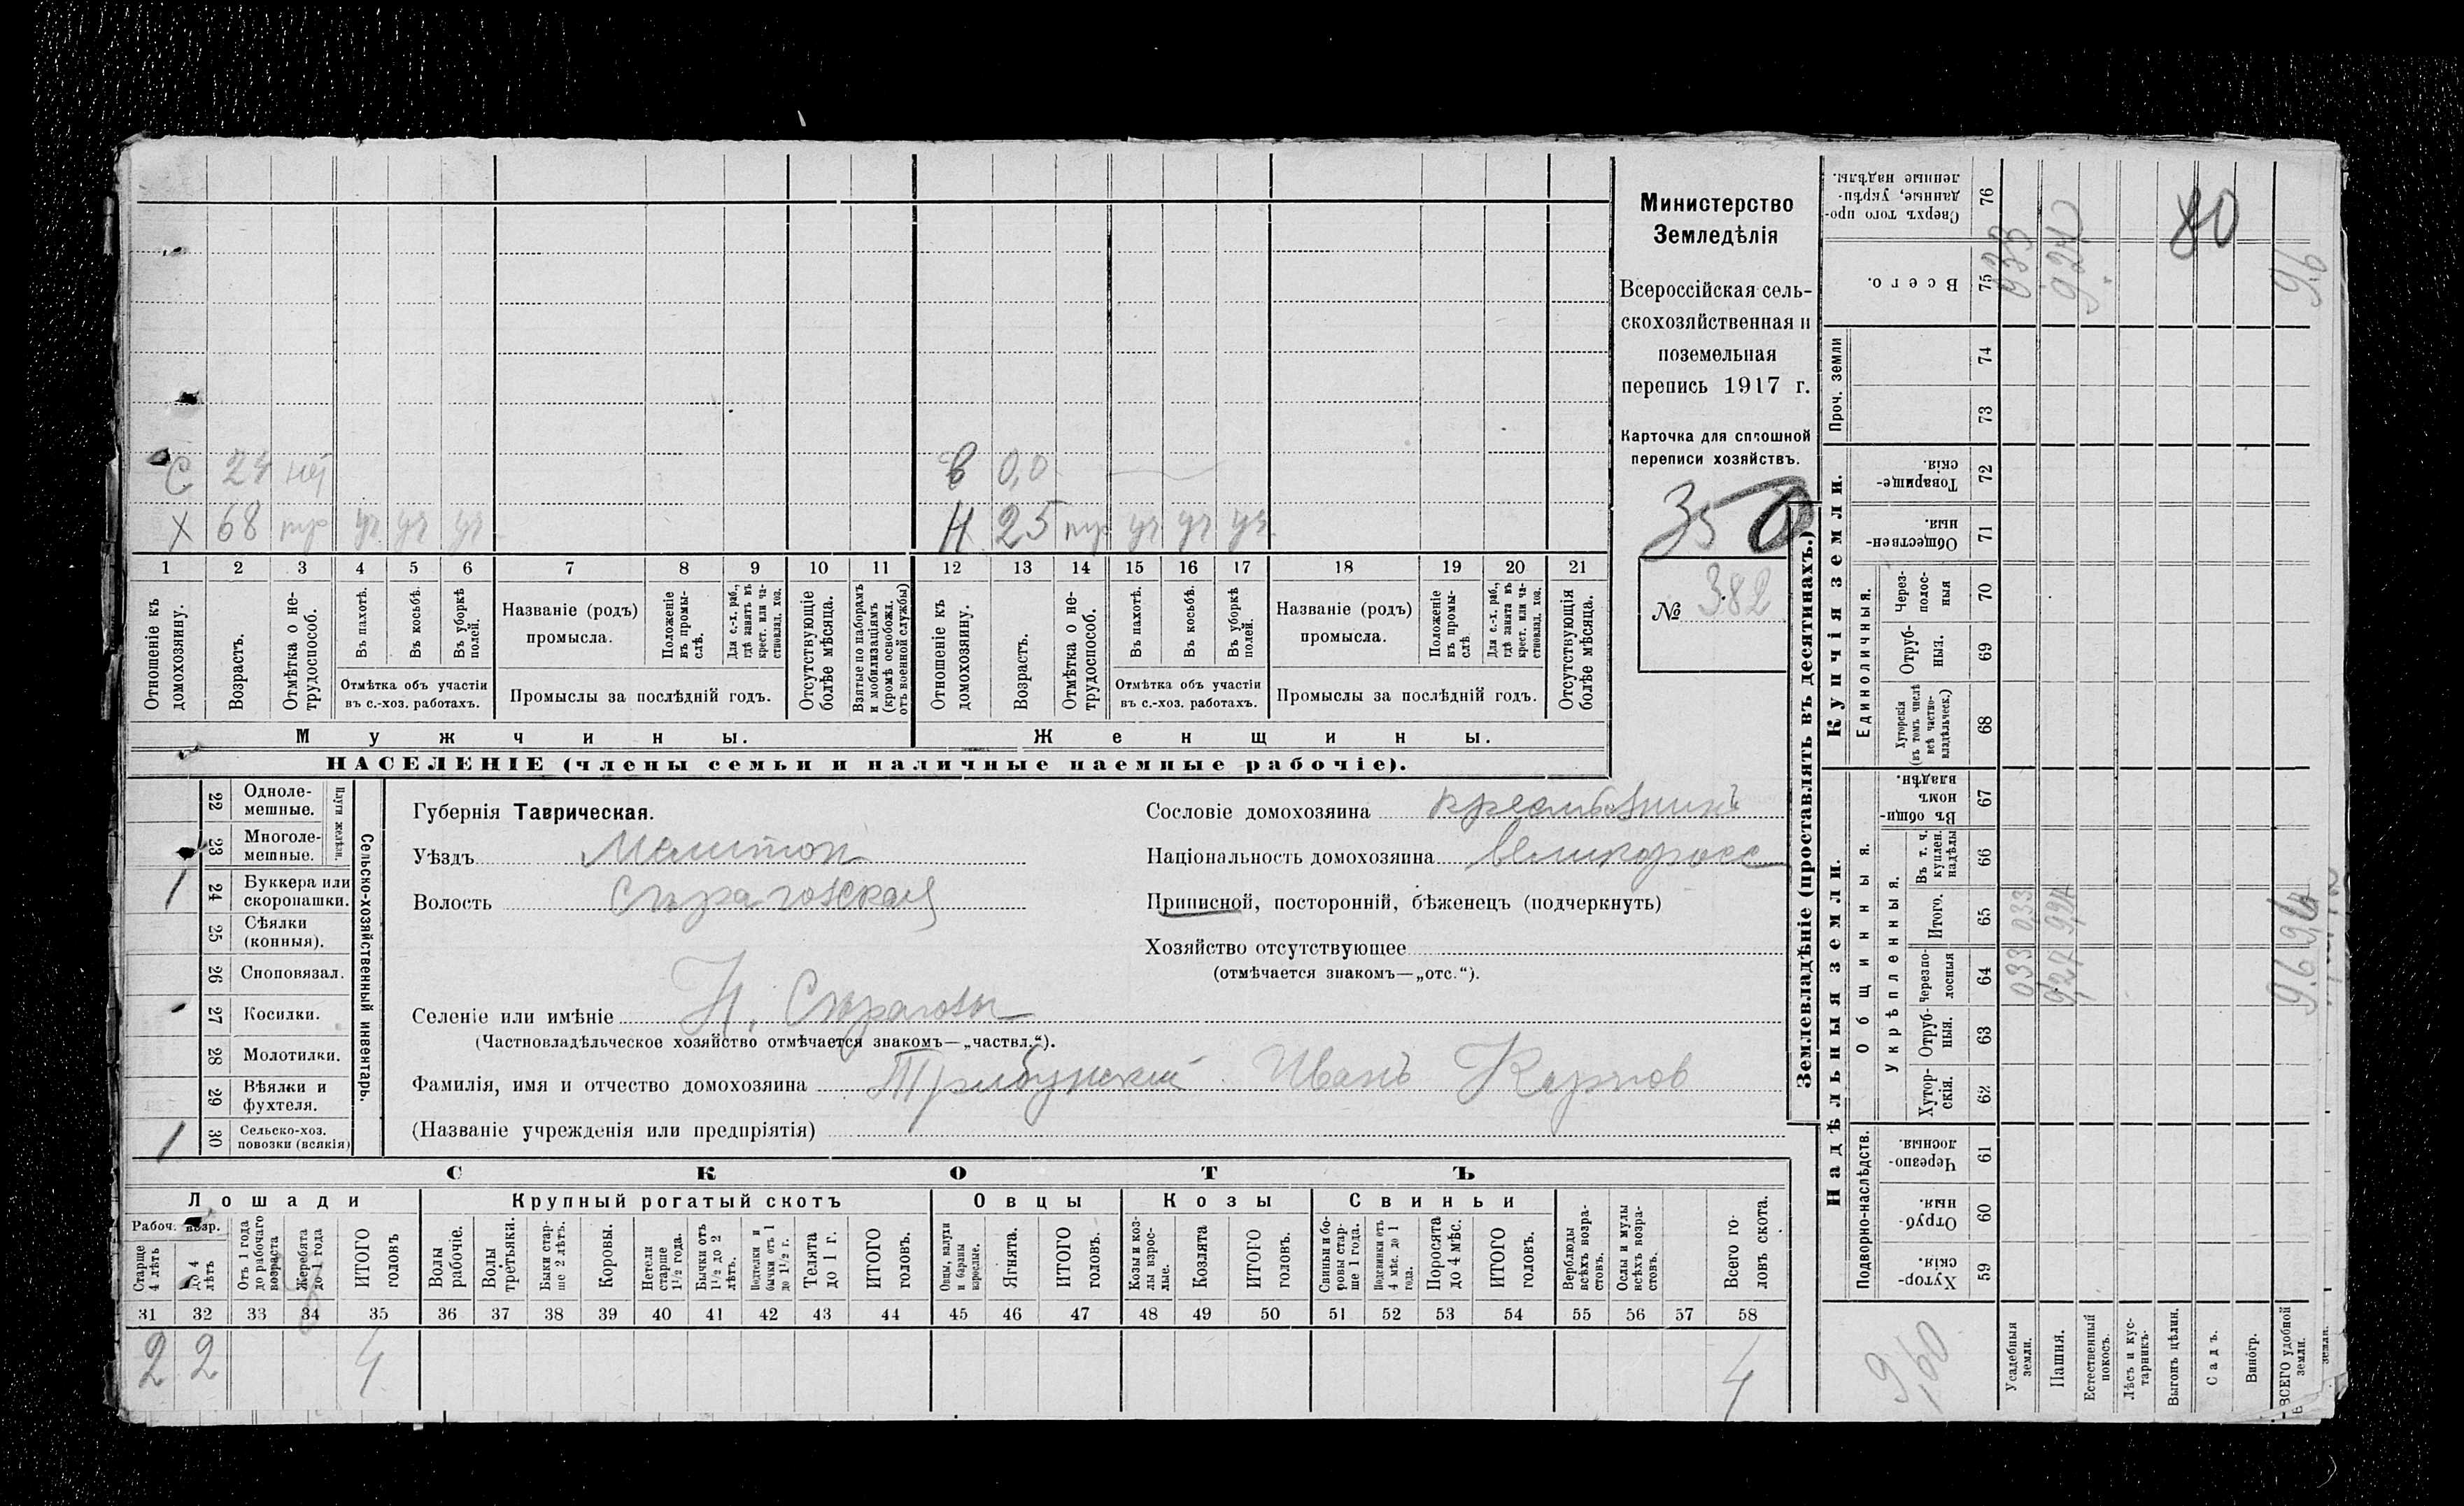 С 24 не В 0,0
Х 68 тр уч уч уч Н 25 тр уч уч уч
1 2 3 4 5 6 7 8 9 10 11 12 13 14 15 16 17 18 19 20 21
Отношеніе къ домохозяину.
Возрастъ.
Отмѣтка о не-трудоспособ.
Въ пахотѣ.
Въ косьбѣ.
Въ уборкѣ полей.
Отмѣтка объ участіи
въ с.-хоз. работахъ.
Названіе (родъ)
промысла.
Положеніе въ промы-слѣ.
Для с.-х. раб., гдѣ занятъ въ крест. или ча-стновлад. хоз.
Промыслы за послѣдній годъ.
Отсутствующіе болѣе мѣсяца.
Взятые по наборамъ и мобилизаціямъ (кромѣ освобожд. отъ военной службы)
Отношеніе къ домохозяину.
Возрастъ.
Отмѣтка о не-трудоспособ.
Въ пахотѣ.
Въ косьбѣ.
Въ уборкѣ полей.
Отмѣтка объ участіи
въ с.-хоз. работахъ.
Названіе (родъ)
промысла.
Положеніе въ промы-слѣ.
Для с.-х. раб., гдѣ занята въ крест. или ча-стновлад. хоз.
Промыслы за послѣдній годъ.
Отсутствующія болѣе мѣсяца.
Мужчины. Женщины.
НАСЕЛЕНІЕ (члены семьи и наличные наемные рабочіе).
Министерство
Земледѣлія
Всероссійская сель-
скохозяйственная и
поземельная
перепись 1917 г.
Карточка для сплошной
переписи хозяйствъ.
350
№ 382
Сельско-хозяйственный инвентарь.
Плуги желѣзн.
22 Одноле-
мешные.
23 Многоле-
мешные.
1 24 Буккера или
скоропашки.
25 Сѣялки
(конныя).
26 Сноповязал.
27 Косилки.
28 Молотилки.
29 Вѣялки и
фухтеля.
1 30 Сельско-хоз.
повозки (всякія)
Губернія Таврическая.
Уѣздъ Мелитоп
Волость
Селеніе или имѣніе Н.
(Частновладѣльческое хозяйство отмѣчается знакомъ—„частвл.“).
Фамилія, имя и отчество домохозяина Трибунский Иванъ Карпов
(Названіе учрежденія или предпріятія)
Сословіе домохозяина крестьянинъ
Національность домохозяина великоросс
Приписной, посторонній, бѣженецъ (подчеркнуть)
Хозяйство отсутствующее
(отмѣчается знакомъ—„отс.“).
СКОТЪ
Лошади Крупный рогатый скотъ Овцы Козы Свиньи
Рабоч. возр.
Старше 4 лѣтъ
до 4 лѣтъ
Отъ 1 года до рабочаго возраста
Жеребята до 1 года
ИТОГО головъ
Волы рабочіе.
Волы третьяки.
Быки стар-ше 2 лѣтъ.
Коровы.
Нетели старше 1½ года.
Бычки отъ 1½ до 2 лѣтъ.
Подтелки и бычки отъ 1 до 1½ г.
Телята до 1 г.
ИТОГО головъ.
Овцы, валухи и бараны взрослые.
Ягнята.
ИТОГО головъ.
Козы и коз-лы взрос-лые.
Козлята
ИТОГО головъ.
Свиньи и бо-ровы стар-ше 1 года.
Подсвинки отъ 4 мѣс. до 1 года.
Поросята до 4 мѣс.
ИТОГО головъ.
Верблюды всѣхъ возра-стовъ.
Ослы и мулы всѣхъ возра-стовъ.
Всего го-ловъ скота.
31 32 33 34 35 36 37 38 39 40 41 42 43 44 45 46 47 48 49 50 51 52 53 54 55 56 57 58
2 2 4 4
Землевладѣніе (проставлять въ десятинахъ.)
Надѣльныя земли. Купчія земли. Проч. земли
Подворно-наслѣдств. Общинныя. Единоличныя.
Укрѣпленныя.
Хутор-скія. 59
Отруб-ныя. 60
Черезпо-лосныя. 61
Хутор-скія. 62
Отруб-ныя. 63
Черезпо-лосныя 64
Итого. 65
Въ т. ч. куплен. надѣлы 66
Въ общин-номъ владѣн. 67
Хуторскія (въ томъ числѣ всѣ частно-владѣльческ.) 68
Отруб-ныя. 69
Через-полос-ныя 70
Обществен-ныя. 71
Товарище-скія. 72
73
74
Всего. 75
Сверхъ того про-данные, укрѣп-ленные надѣлы. 76
9,60
Усадебныя земли. 0,33 0,33 0,33
Пашня. 9,27
Естественный покосъ.
Лѣсъ и кус-тарникъ.
Выгонъ цѣлин.
Садъ.
Виногр.
ВСЕГО удобной земли. 9.6 9.6
80